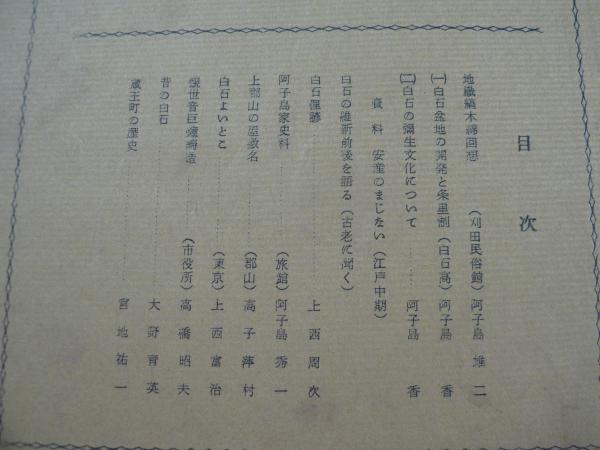 目次
地機縞木綿回想……(刈田民俗館)阿子島雄二
(一)白石盆地の開発と条里制(白石高)阿子島香
(二)白石の彌生文化について……阿子島香
資料 安産のまじない(江戸中期)
白石の維新前後を語る(古老に聞く)
白石俚諺……上西周次
阿子島家史料……(旅館)阿子島秀一
上郡山の屋敷名……(郡山)高子萍村
白石よいとこ……(東京)上西富治
救世音巨鐘鋳造……(市役所)高橋昭夫
昔の白石……大野育英
蔵王町の歴史……宮地祐一